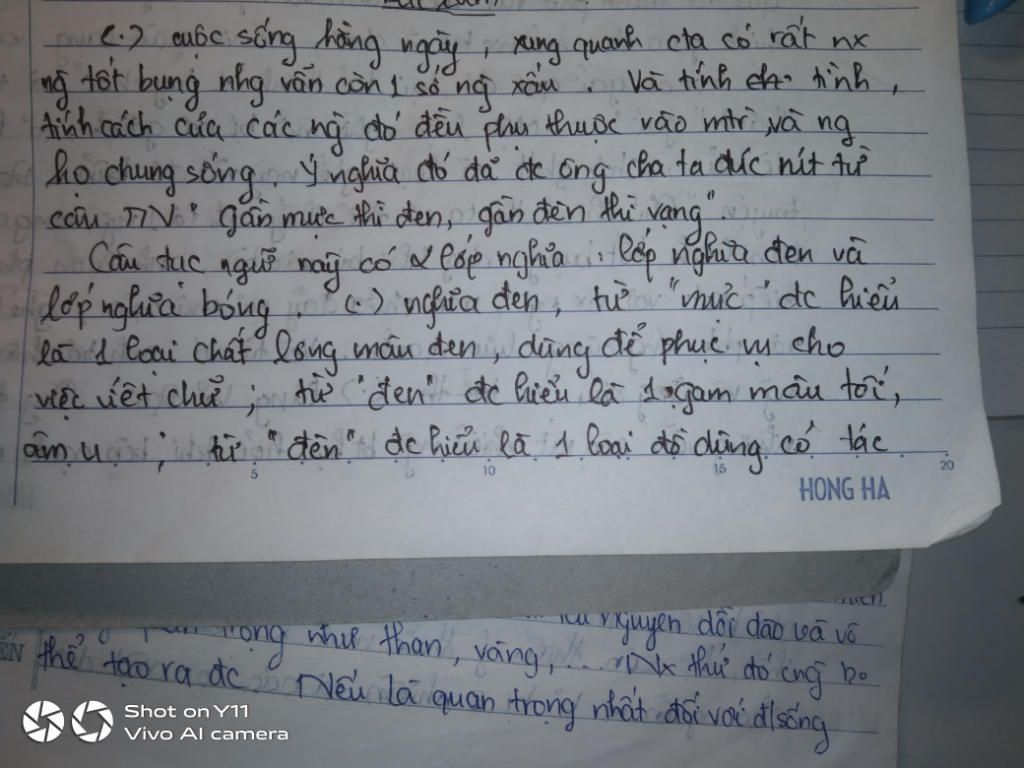 (.) cuộc sống hằng ngày, xung quanh cta có rất nx
ng tốt bụng nhg vẫn còn 1 số ng xấu. Và tính tình,
tính cách của các ng đó đều phụ thuộc vào mtr và ng
họ chung sống. Ý nghĩa đó đã đc ông cha ta đúc nít từ
câu TNV "Gần mực thì đen, gần đèn thì vạng".
Câu tục ngữ này có 2 lớp nghĩa: lớp nghĩa đen và
lớp nghĩa bóng. (.) nghĩa đen, từ "mực" đc hiểu
là 1 loại chất lỏng màu đen, dùng để phục vụ cho
việc viết chữ; từ "đen" đc hiểu là 1 gam màu tối,
âm u; từ "đèn" đc hiểu là 1 loại đồ dùng có tác
5 10 15 20
HONG HA
nguyên dồi dào và vô
trọng như than, vàng,... Nx thứ đó cng ko
thể tạo ra đc. Nếu là quan trọng nhất đối với đ/sống
Shot on Y11
Vivo AI camera